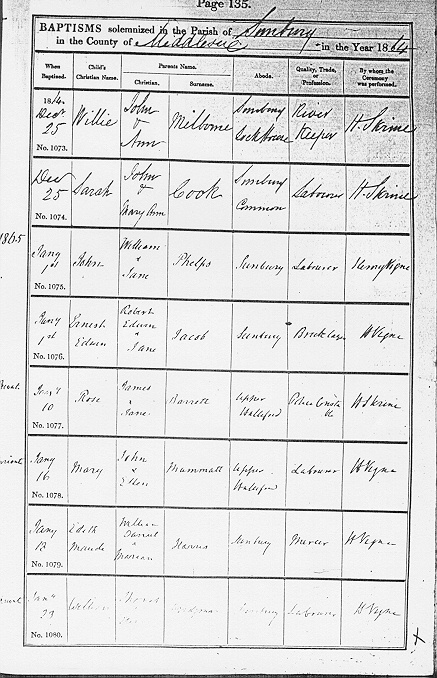 Page 135.
BAPTISMS solemnized in the Parish of Sunbury
in the County of Middlesex in the Year 1864
When Baptised. Child's Christian Name. Parents Name. Christian. Surname. Abode. Quality, Trade, or Profession. By whom the Ceremony was performed.
1864. Decr 25 No. 1073. Willie John & Ann Milbome Sunbury Lock House River Keeper H. Skrine
Dec 25 No. 1074. Sarah John & Mary Ann Cook Sunbury Common Labourer H. Skrine
1865
Jany 1st No. 1075. John William & Jane Phelps Sunbury Labourer Henry Vigne
Jany 1st No. 1076. Ernest Edwin Robert Edwin & Jane Jacob Sunbury Bricklayer H Vigne
10 No. 1077. Rose James & Jane Barrett Upper Halliford Police Constable H Skrine
Jany 16 No. 1078. Mary John & Ellen Mummatt Upper Halliford Labourer H Vigne
Jany 13 No. 1079. Edith Maude William & Harris Sunbury Mercer H Vigne
No. 1080. William Sunbury Labourer H Vigne